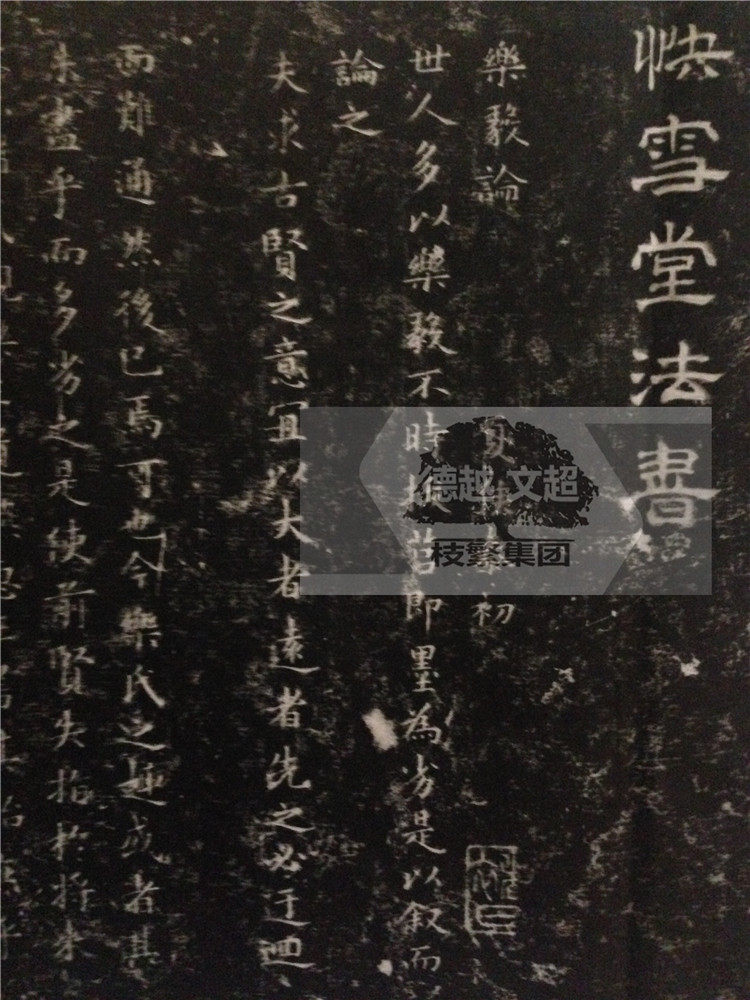 快雪堂法書
樂毅論 夏 初
世人多以樂毅不時拔莒即墨為劣是以叙而
論之
夫求古賢之意宜以大者遠者先之必迂迴
而難通然後已焉可也今樂氏之趣或者其
未盡乎而多劣之是使前賢失指於将来
德越 文超
枝繁集团